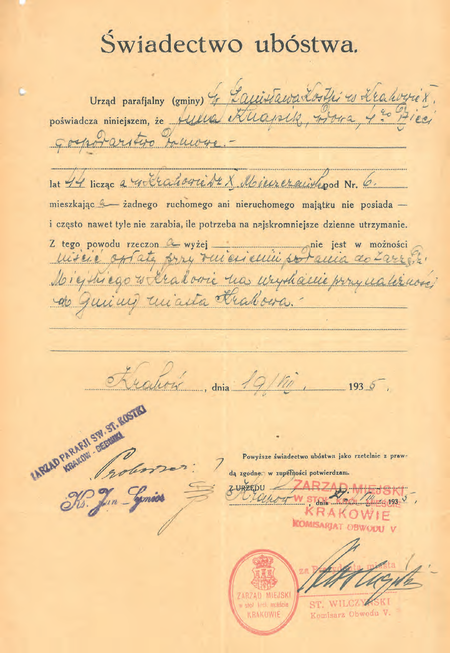 Świadectwo ubóstwa.
Urząd parafjalny (gminy) św. Stanisława Kostki w Krakowie X
poświadcza niniejszem, że Anna Knapik, wdowa, 4
gospodarstwo domowe. -
lat 44 licząc a w Krakowie Dz X Mieszczańska pod Nr. 6.
mieszkając a - żadnego ruchomego ani nieruchomego majątku nie posiada —
i często nawet tyle nie zarabia, ile potrzeba na najskromniejsze dzienne utrzymanie.
Z tego powodu rzeczon a wyżej nie jest w możności
uiścić opłaty przy wniesieniu podania do Zarz.
Miejskiego w Krakowie na uzyskanie przynależności
do Gminy miasta Krakowa. -
Kraków, dnia 19/VIII. 1935.
ZARZĄD PARAFJI ŚW. ST. KOSTKI
KRAKÓW - DĘBNIKI
Proboszcz:
Ks. Jan
Powyższe świadectwo ubóstwa jako rzetelnie z praw-
dą zgodne w zupełności potwierdzam.
Z URZĘDU
ZARZĄD MIEJSKI
W STOŁ. KRÓL. MIEŚCIE
Kraków, dnia 1935
KRAKOWIE
KOMISARJAT OBWODU V
ZARZĄD MIEJSKI
w stoł. król. mieście
KRAKOWIE
za Prezydenta miasta
ST. WILCZYŃSKI
Komisarz Obwodu V.